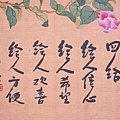 四人給
給人信心
給人希望
給人歡喜
給人方便